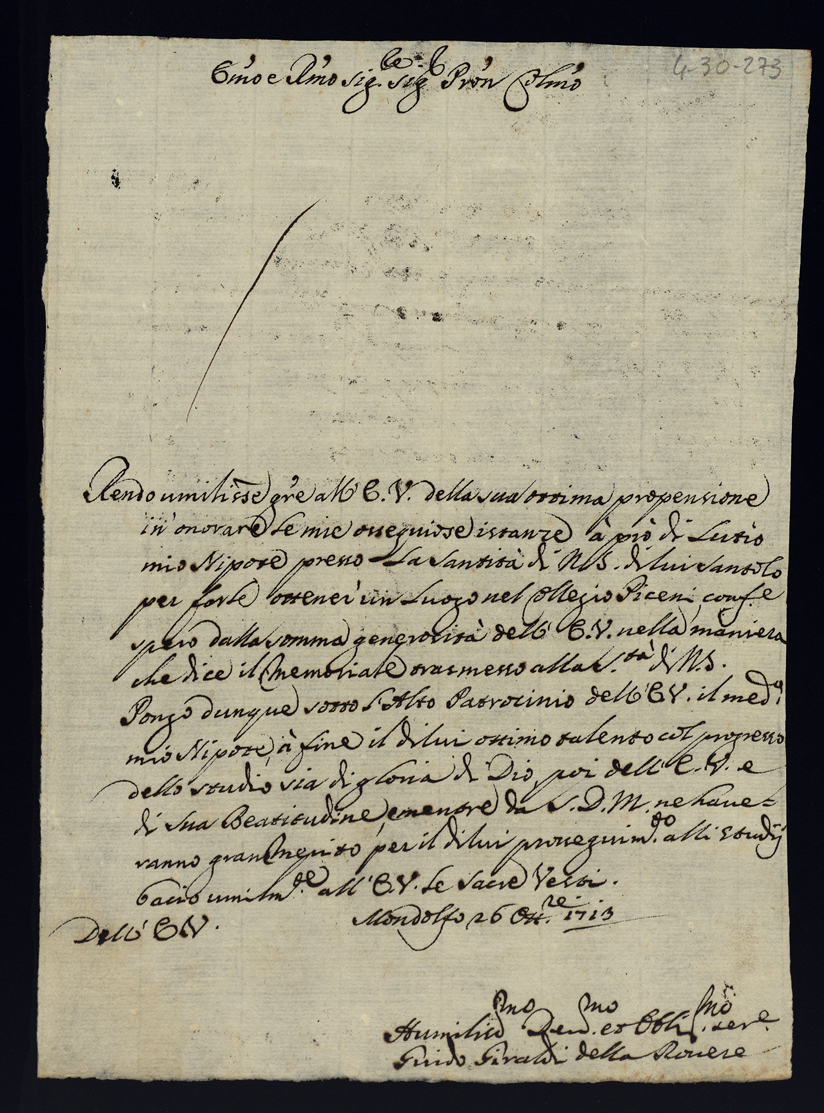 4-30-273
Emo e Rmo Sig.re Sig.r Pron Colmo
Rendo umilisse gre all' E.V. della sua ottima propensione
in onorare le mie ossequiose istanze à prò di Lutio
mio Nipote presso La Santità di N.S. di lui Santolo
per forse ottener un Luogo nel Collegio Piceni, conf.e
spero dalla somma generosità dell' E.V. nella maniera
che dice il Memoriale trasmesso alla S.tà di N.S.
Pongo dunque sotto l'Alto Patrocinio dell' E.V. il med.o
mio Nipote, à fine il di lui ottimo talento col progresso
dello studio sia di gloria di Dio, poi dell' E.V. e
di Sua Beatitudine, e mentre da S.D.M. ne have=
ranno gran Merito per il di lui proseguim.to alli Studij
bacio umilm.te all' E.V. le Sacre Vesti.
Dell' E.V. Mondolfo 26 Ott.re 1713
Humiliss.mo Dev.mo et Obblig.mo Ser.e
Guido Giraldi della Rovere